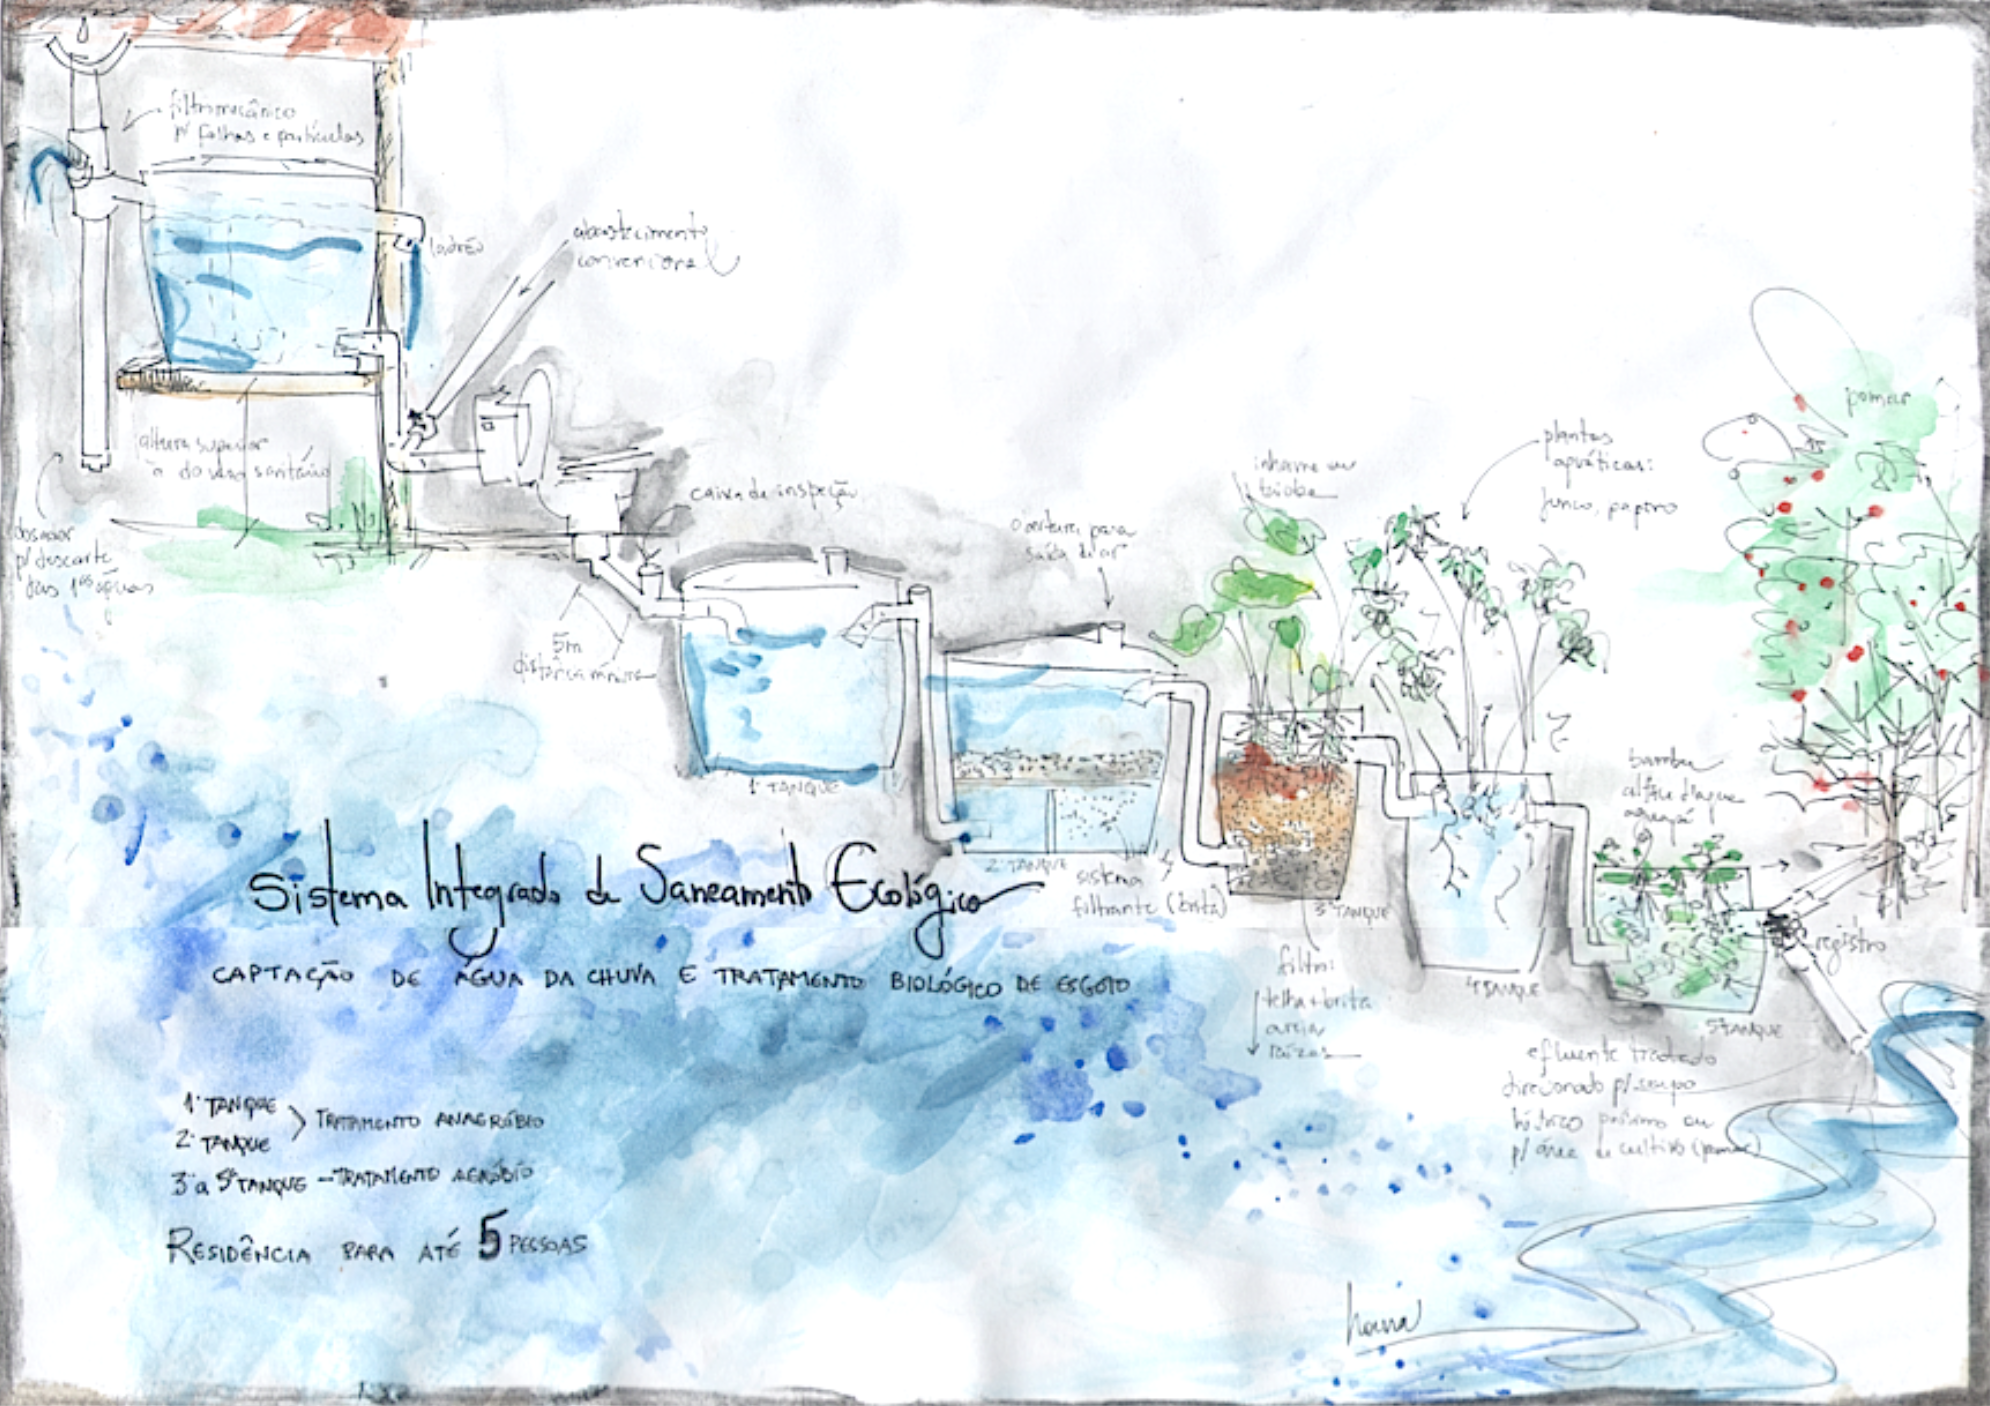 filtro mecânico
p/ folhas e partículas
ladrão
abastecimento
convencional
altura superior
à do vaso sanitário
dosador
p/ descarte
das 1ªs águas
caixa de inspeção
5m
distância mínima
abertura para
saída de ar
inhame ou
taioba
plantas
aquáticas:
junco, papiro
pomar
1º TANQUE
2º TANQUE
sistema
filtrante (brita)
3º TANQUE
filtro:
telha + brita
areia
raízes
4º TANQUE
bambu
alface d'água
aguapé
registro
5º TANQUE
efluente tratado
direcionado p/ corpo
hídrico próximo ou
p/ área de cultivo (pomar)
Sistema Integrado de Saneamento Ecológico
CAPTAÇÃO DE ÁGUA DA CHUVA E TRATAMENTO BIOLÓGICO DE ESGOTO
1º TANQUE
2º TANQUE
TRATAMENTO ANAERÓBIO
3º a 5º TANQUE - TRATAMENTO AERÓBIO
RESIDÊNCIA PARA ATÉ 5 PESSOAS